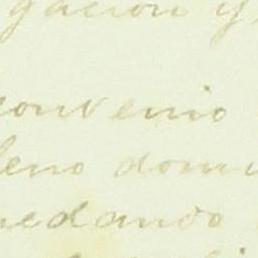 gacion y
convenio
leno domi
uedando